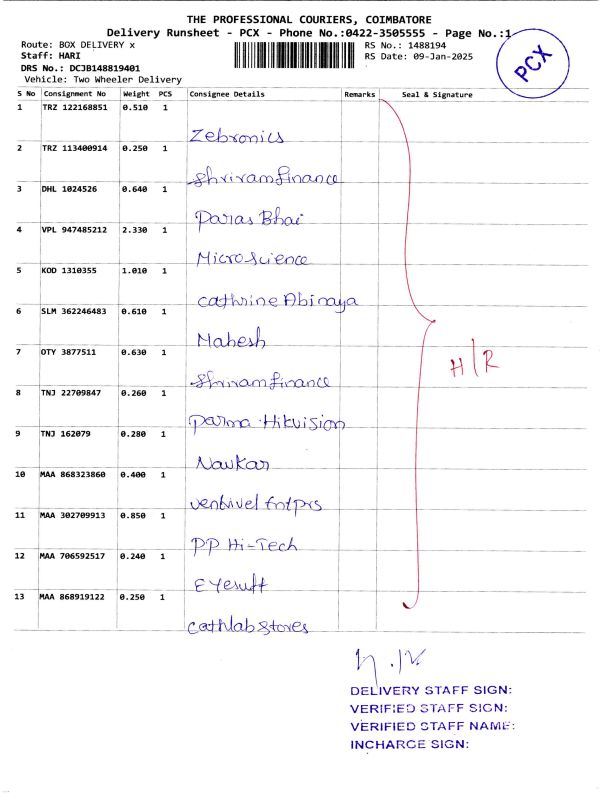 THE PROFESSIONAL COURIERS, COIMBATORE
Delivery Runsheet - PCX - Phone No.:0422-3505555 - Page No.:1
Route: BOX DELIVERY x
RS No.: 1488194
Staff: HARI
RS Date: 09-Jan-2025
DRS No.: DCJB148819401
Vehicle: Two Wheeler Delivery
PCX
S No Consignment No Weight PCS Consignee Details Remarks Seal & Signature
1 TRZ 122168851 0.510 1
Zebronics
2 TRZ 113400914 0.250 1
Shriramfinance
3 DHL 1024526 0.640 1
Paras Bhai
4 VPL 947485212 2.330 1
Microscience
5 KOD 1310355 1.010 1
cathrine Abinaya
6 SLM 362246483 0.610 1
Mahesh
7 OTY 3877511 0.630 1
Shriramfinance
H/R
8 TNJ 22709847 0.260 1
Parma Hikvision
9 TNJ 162079 0.280 1
Navkar
10 MAA 868323860 0.400 1
11 MAA 302709913 0.850 1
PP Hi-Tech
12 MAA 706592517 0.240 1
13 MAA 868919122 0.250 1
cathlab stores
DELIVERY STAFF SIGN:
VERIFIED STAFF SIGN:
VERIFIED STAFF NAME:
INCHARGE SIGN: